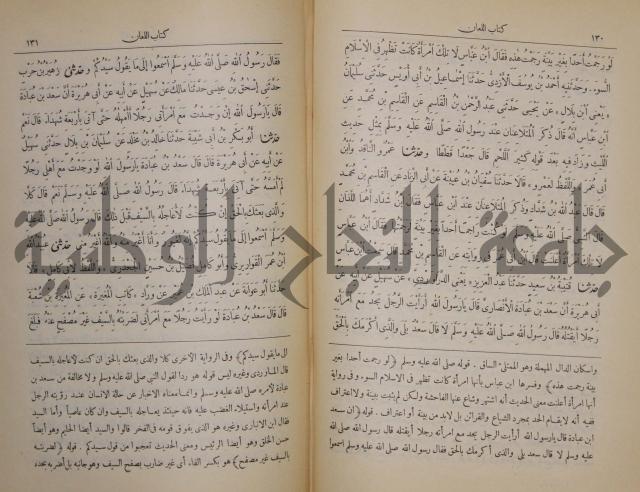 ١٣٠
كتاب اللعان
لو رجمت أحدا بغير بينة رجمت هذه فقال ابن عباس لا تلك امرأة كانت تظهر في الاسلام
السوء. وحدثنيه أحمد بن يوسف الأزدي حدثنا إسماعيل بن أبي أويس حدثني سليمان
«يعني ابن بلال» عن يحيى حدثني عبد الرحمن بن القاسم عن القاسم بن محمد عن
ابن عباس أنه قال ذكر المتلاعنان عند رسول الله صلى الله عليه وسلم بمثل حديث
الليث وزاد فيه بعد قوله كثير اللحم قال جعدا قططا وحدثنا عمرو الناقد وابن
أبي عمر واللفظ لعمرو» قالا حدثنا سفيان بن عيينة عن أبي الزناد عن القاسم بن محمد
قال قال عبد الله بن شداد وذكر المتلاعنان عند ابن عباس فقال ابن شداد أهما اللذان
قال النبي صلى الله عليه وسلم لو كنت راجما أحدا بغير بينة لرجمتها فقال ابن عباس
لا تلك امرأة أعلنت قال ابن أبي عمر في روايته عن القاسم بن محمد قال سمعت ابن عباس
حدثنا قتيبة بن سعيد حدثنا عبد العزيز «يعني الدراوردي» عن سهيل عن أبيه عن
أبي هريرة أن سعد بن عبادة الأنصاري قال يارسول الله أرأيت الرجل يجد مع امرأته
رجلا أيقتله قال رسول الله صلى الله عليه وسلم لا قال سعد بلى والذي أكرمك بالحق
واسكان الدال المهملة وهو الممتلئ الساق. قوله صلى الله عليه وسلم ﴿لو رجمت أحدا بغير
بينة رجمت هذه﴾ وفسرها ابن عباس بأنها امرأة كانت تظهر في الاسلام السوء وفي رواية
أنها امرأة أعلنت معنى الحديث أنه اشتهر وشاع عنها الفاحشة ولكن لم يثبت بينة ولا اعتراف
ففيه أنه لا يقام الحد بمجرد الشياع والقرائن بل لابد من بينة أو اعتراف. قوله ﴿ان سعد
ابن عبادة قال يارسول الله أرأيت الرجل يجد مع امرأته رجلا أيقتله قال رسول الله صلى الله
عليه وسلم لا قال سعد بلى والذي أكرمك بالحق فقال رسول الله صلى الله عليه وسلم اسمعوا
كتاب اللعان
١٣١
فقال رسول الله صلى الله عليه وسلم اسمعوا إلى ما يقول سيدكم وحدثني زهير بن حرب
حدثني إسحق بن عيسى حدثنا مالك عن سهيل عن أبيه عن أبي هريرة أن سعد بن عبادة
قال يارسول الله إن وجدت مع امرأتي رجلا أأمهله حتى آتي بأربعة شهداء قال نعم
حدثنا أبو بكر بن أبي شيبة حدثنا خالد بن مخلد عن سليمان بن بلال حدثني سهيل
عن أبيه عن أبي هريرة قال قال سعد بن عبادة يارسول الله لو وجدت مع أهلي رجلا
لم أمسه حتى آتي بأربعة شهداء قال رسول الله صلى الله عليه وسلم نعم قال كلا
والذي بعثك بالحق إن كنت لأعاجله بالسيف قبل ذلك قال رسول الله صلى الله عليه
وسلم اسمعوا إلى ما يقول سيدكم إنه لغيور وأنا أغير منه والله أغير مني حدثني عبيد الله
ابن عمر القواريري وأبو كامل فضيل بن حسين الجحدري «واللفظ لأبي كامل» قالا
حدثنا أبو عوانة عن عبد الملك بن عمير عن وراد «كاتب المغيرة» عن المغيرة بن شعبة
قال قال سعد بن عبادة لو رأيت رجلا مع امرأتي لضربته بالسيف غير مصفح عنه فبلغ
الى ما يقول سيدكم﴾ وفي الرواية الاخرى كلا والذي بعثك بالحق ان كنت لأعاجله بالسيف
قال الماوردي وغيره ليس قوله هو ردا لقول النبي صلى الله عليه وسلم ولا مخالفة من سعد بن
عبادة لأمره صلى الله عليه وسلم وانما معناه الاخبار عن حالة الانسان عند رؤيته الرجل
عند امرأته واستيلاء الغضب عليه فانه حينئذ يعاجله بالسيف وان كان عاصيا وأما السيد
فقال ابن الانباري وغيره هو الذي يفوق قومه في الفخر قالوا والسيد أيضا الحليم وهو أيضا
حسن الخلق وهو أيضا الرئيس ومعنى الحديث تعجبوا من قول سيدكم. قوله ﴿لضربته
بالسيف غير مصفح﴾ هو بكسر الفاء أي غير ضارب بصفح السيف وهو جانبه بل أضربه بحده
جامعة النجاح الوطنية